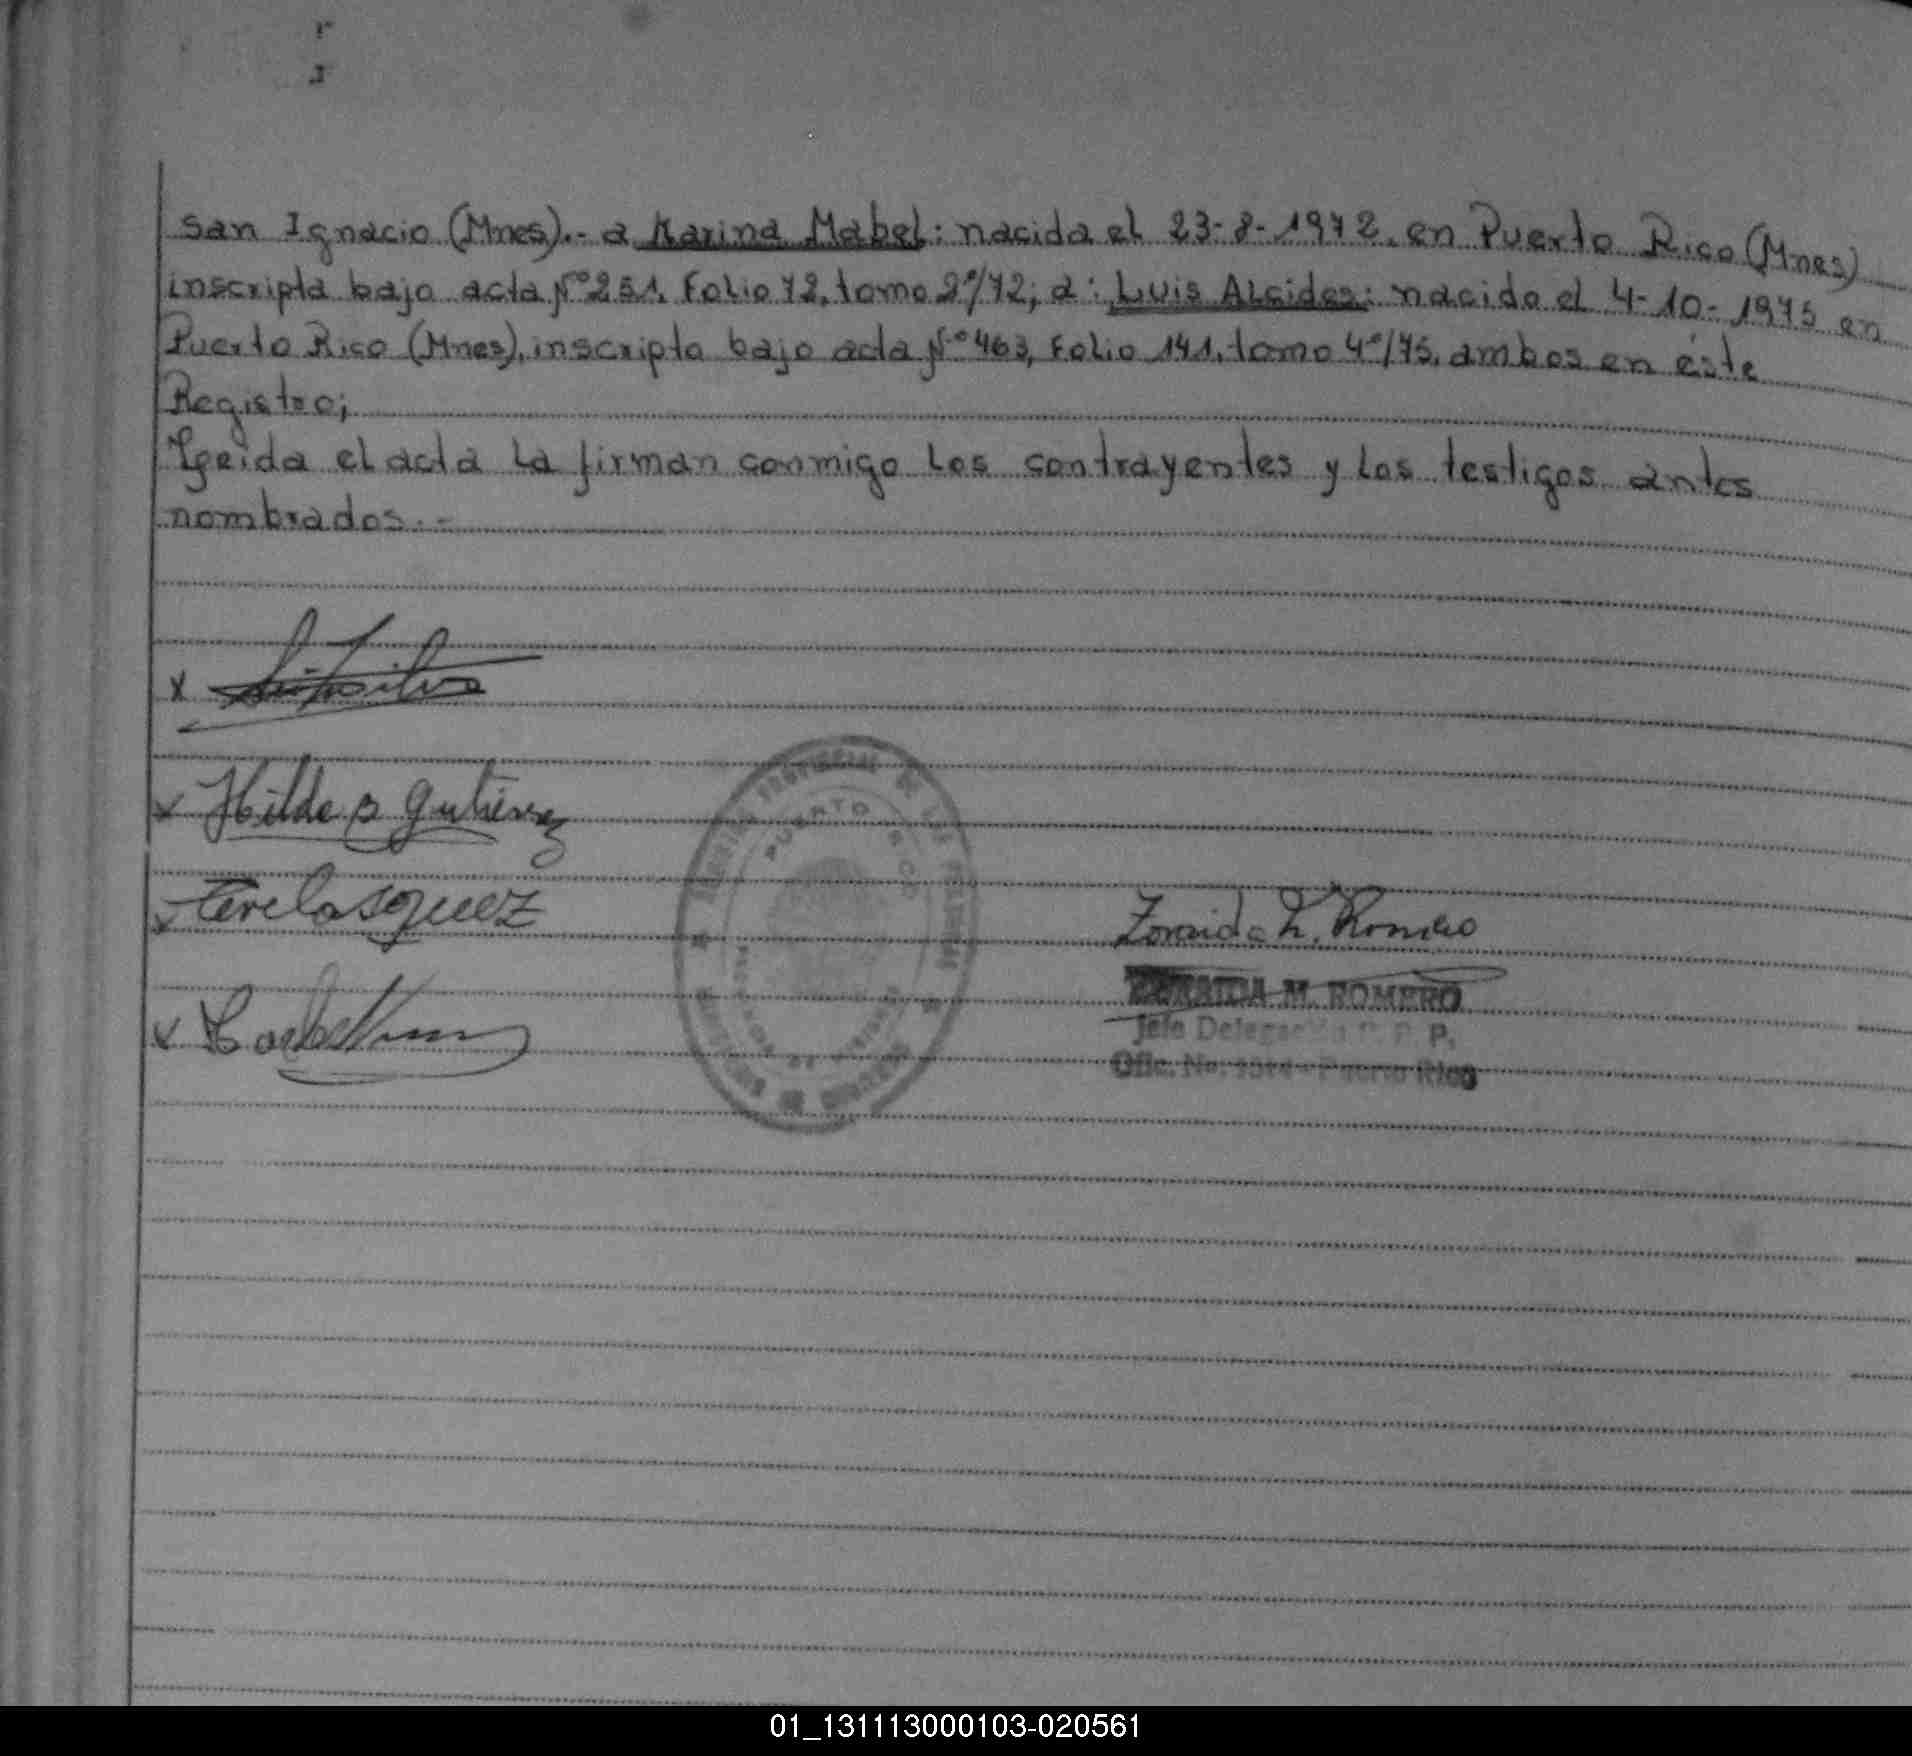 san Ignacio (Mnes).- a Karina Mabel: nacida el 23-8-1972, en Puerto Rico (Mnes)
inscripta bajo acta Nº 251, Folio 72, tomo 2º/72; a: Luis Alcides: nacido el 4-10-1975 en
Puerto Rico (Mnes), inscripto bajo acta Nº 463, Folio 141, tomo 4º/75, ambos en éste
Registro;
Leida el acta la firman conmigo los contrayentes y los testigos antes
nombrados.-
x
x Hilda B Gutierrez
x Velasquez
x
PUERTO RICO
Zoraida M. Romero
ZORAIDA M. ROMERO
Jefe Delegación R. P. P.
Ofic. No. Puerto Rico
01_131113000103-020561